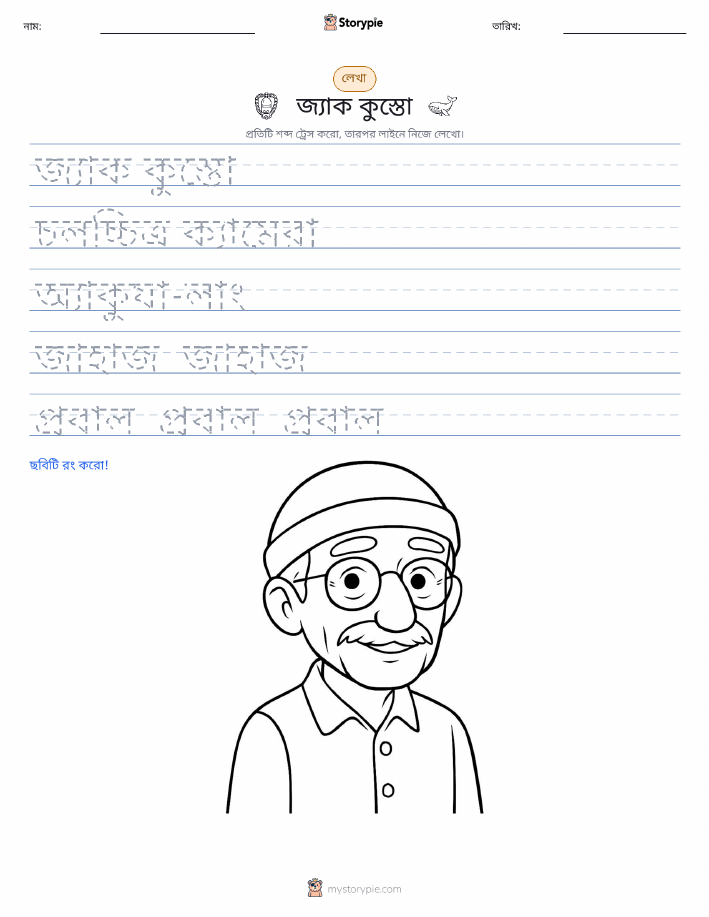 নাম: Storypie তারিখ:
লেখা
জ্যাক কুস্তো
প্রতিটি শব্দ ট্রেস করো, তারপর লাইনে নিজে লেখো।
জ্যাক কুস্তো
চলচ্চিত্র ক্যামেরা
অ্যাকুয়া-লাং
জাহাজ জাহাজ
প্রবাল প্রবাল প্রবাল
ছবিটি রং করো!
mystorypie.com